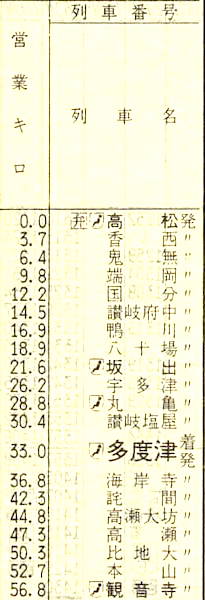 列車番号
営業キロ
列車名
0.0 弁 高松発
3.7 香西〃
6.4 鬼無〃
9.8 端岡〃
12.2 国分〃
14.5 讃岐府中〃
16.9 鴨川〃
18.9 八十場〃
21.6 坂出〃
26.2 宇多津〃
28.8 丸亀〃
30.4 讃岐塩屋〃
33.0 多度津着発
36.8 海岸寺〃
42.3 詫間〃
44.8 高瀬大坊〃
47.3 高瀬〃
50.3 比地大〃
52.7 本山〃
56.8 観音寺〃